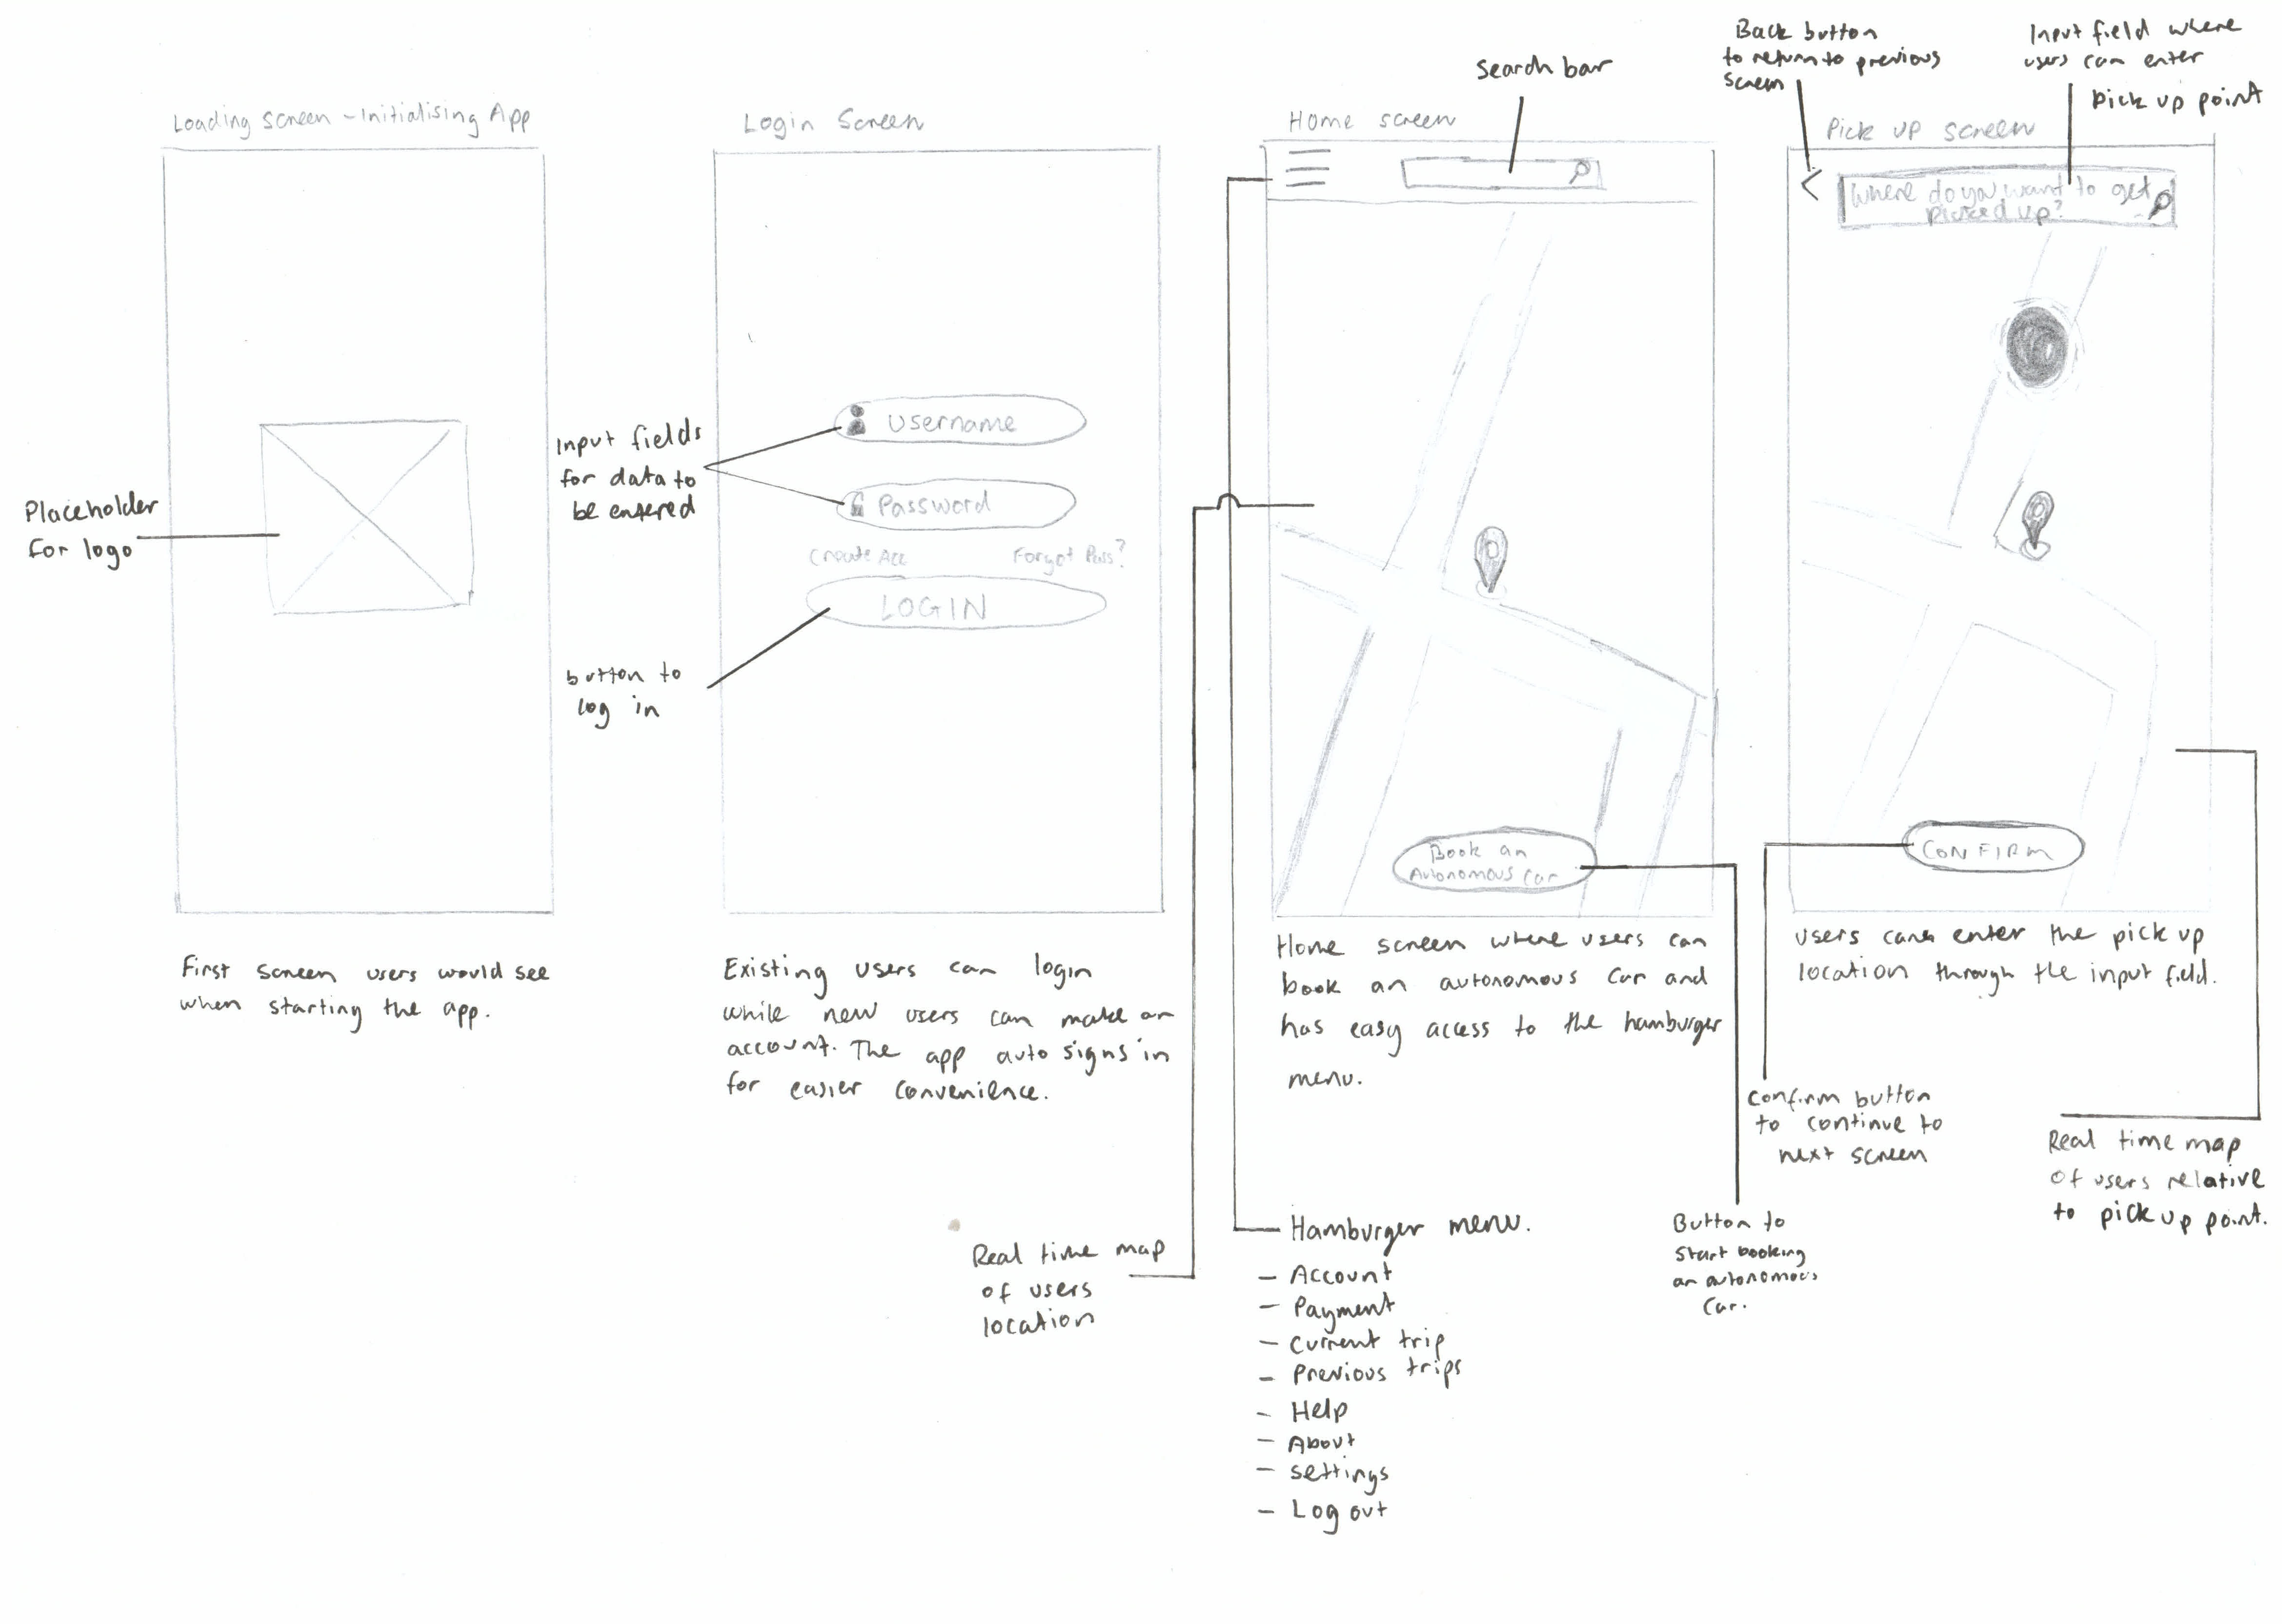 Loading screen - Initialising App
Placeholder
for logo
First screen users would see
when starting the app.
Login Screen
Input fields
for data to
be entered
Username
Password
Create Acc
Forgot Pass?
LOGIN
button to
log in
Existing users can login
while new users can make an
account. The app auto signs in
for easier convenience.
Home screen
search bar
Book an
Autonomous Car
Home screen where users can
book an autonomous car and
has easy access to the hamburger
menu.
Real time map
of users
location
Hamburger menu.
- Account
- Payment
- Current trip
- Previous trips
- Help
- About
- settings
- Log out
Button to
start booking
an autonomous
car.
Back button
to return to previous
screen
Input field where
users can enter
pick up point
Pick up screen
Where do you want to get
picked up?
CONFIRM
users can enter the pick up
location through the input field.
confirm button
to continue to
next screen
Real time map
of users relative
to pick up point.